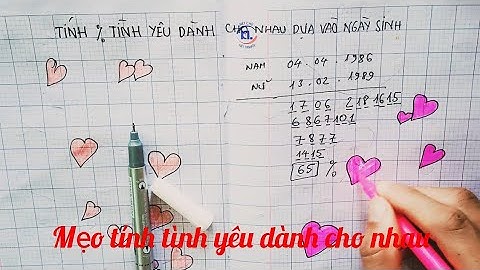 TÍNH % TÌNH YÊU DÀNH CHO NHAU DỰA VÀO NGÀY SINH
NAM 04.04.1986
NỮ 13.02.1989
1706 2181615
6867101
7877
1415
65 %
Mẹo tính tình yêu dành cho nhau